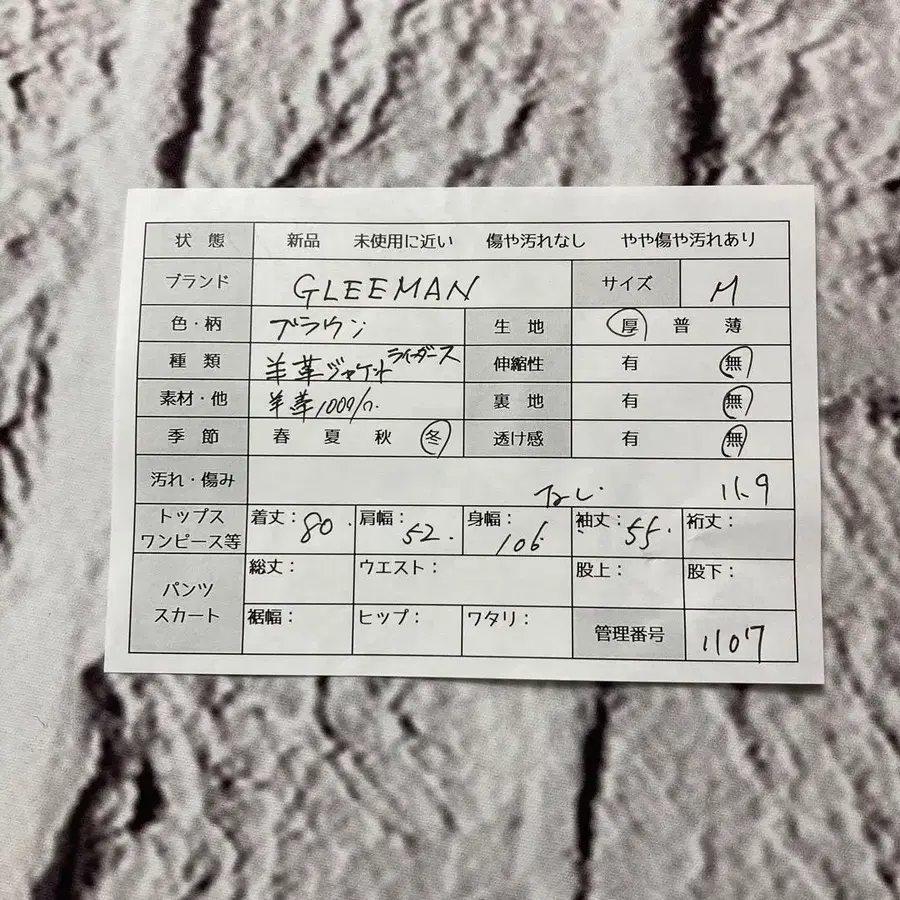 状態 新品 未使用に近い 傷や汚れなし やや傷や汚れあり
ブランド GLEEMAN サイズ M
色・柄 ブラウン 生地 厚 普 薄
種類 羊革ジャケット ライダース 伸縮性 有 無
素材・他 羊革100% 裏地 有 無
季節 春 夏 秋 冬 透け感 有 無
汚れ・傷み なし 11.9
トップス ワンピース等 着丈:80. 肩幅:52. 身幅:106 袖丈:55. 裄丈:
パンツ スカート 総丈: ウエスト: 股上: 股下:
裾幅: ヒップ: ワタリ: 管理番号 1107